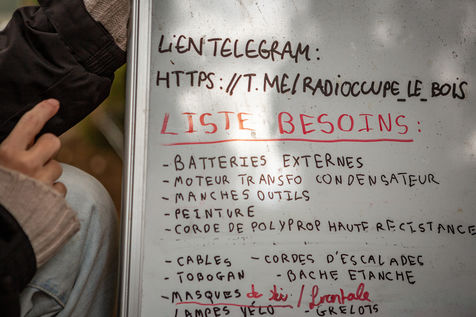 LIEN TELEGRAM:
HTTPS://T.ME/RADIOCCUPE_LE_BOIS
LISTE BESOINS:
- BATTERIES EXTERNES
- MOTEUR TRANSFO CONDENSATEUR
- MANCHES OUTILS
- PEINTURE
- CORDE DE POLYPROP HAUTE RÉSISTANCE
- CABLES - CORDES D'ESCALADES
- TOBOGAN - BACHE ETANCHE
- MASQUES de ski / frontale
LAMPES VÉLO - GRELOTS